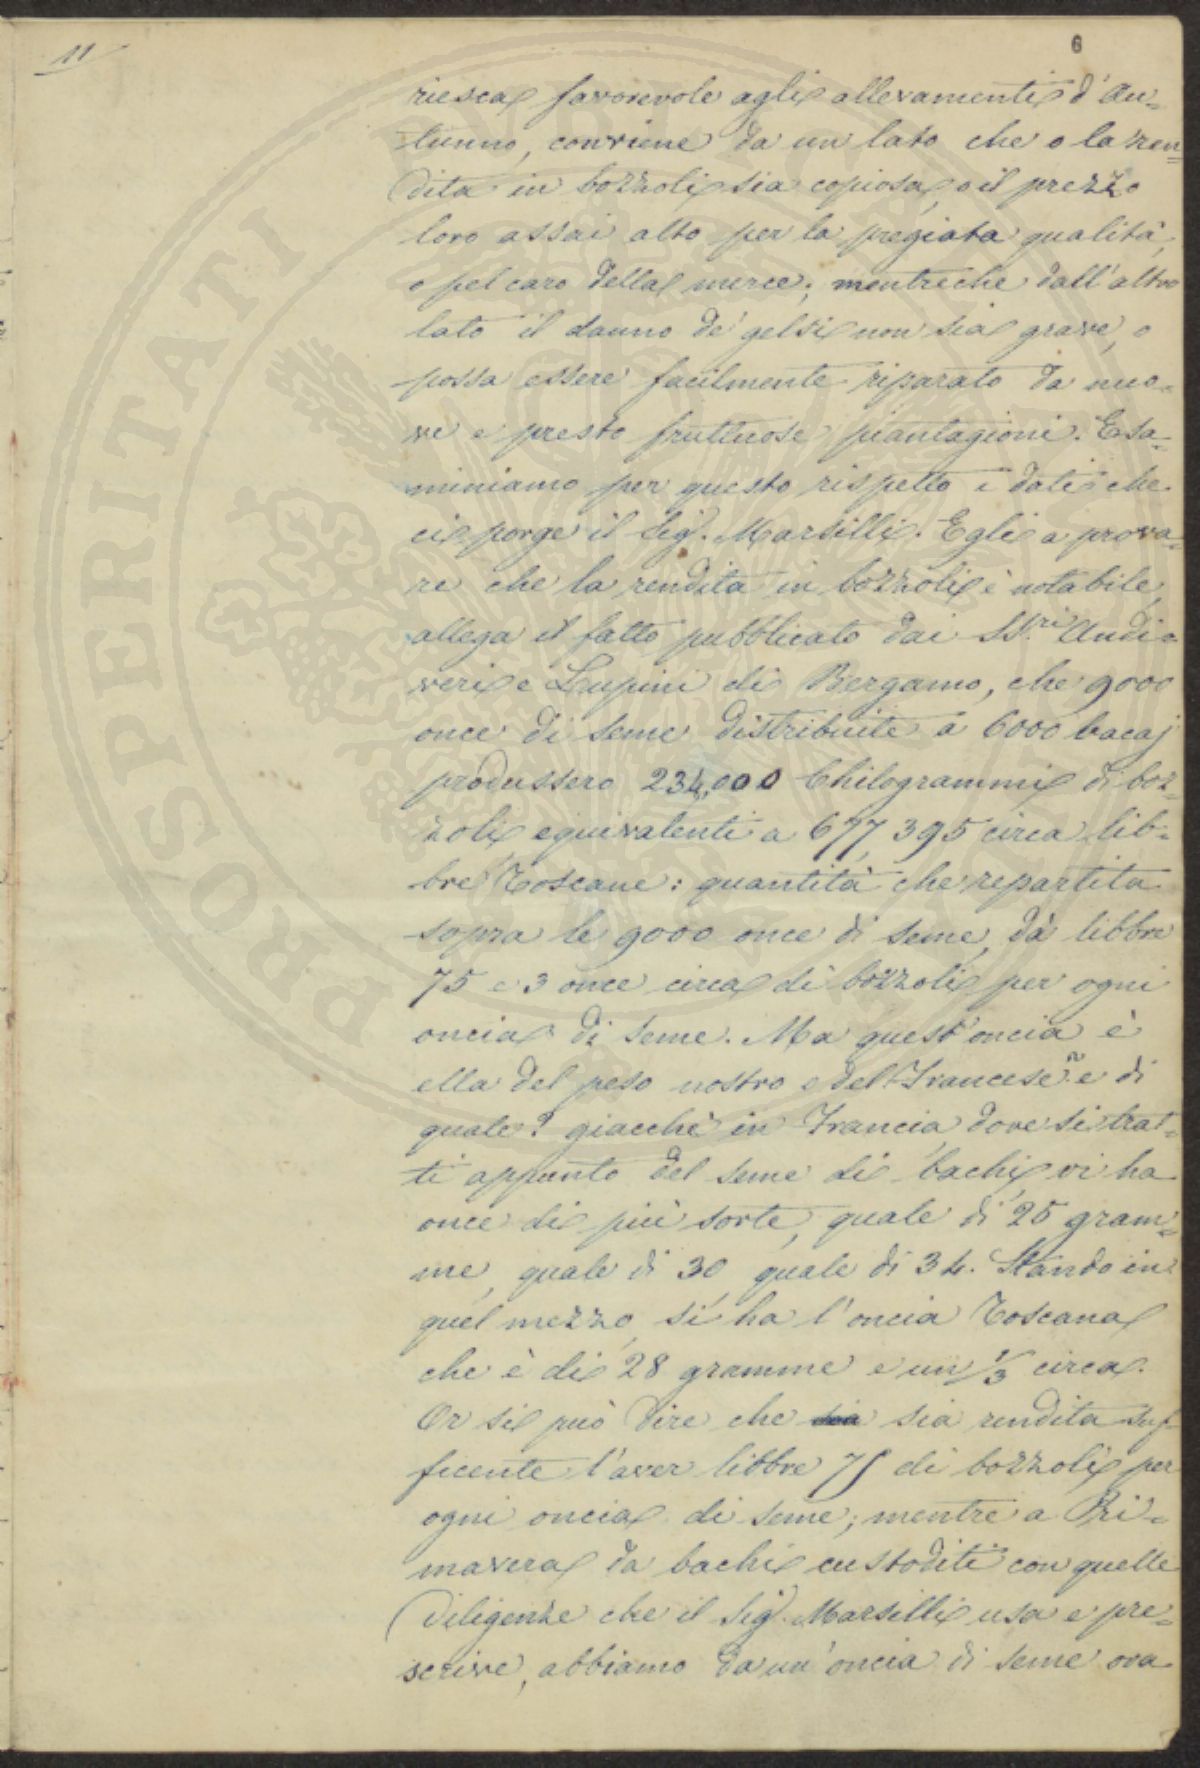 11
6
riesca favorevole agli allevamenti d'Au=
tunno, conviene da un lato che o la ren=
dita in bozzoli sia copiosa, o il prezzo
loro assai alto per la pregiata qualità,
o pel caro della merce; mentreche dall'altro
lato il danno de' gelsi non sia grave, o
possa essere facilmente riparato da nuo=
ve e presto fruttuose piantagioni. Esa=
miniamo per questo rispetto i dati che
ci porge il Sig. Marsilli. Egli a prova=
re che la rendita in bozzoli è notabile,
allega il fatto pubblicato dai SS.ri Audi=
veri e Lupini di Bergamo, che 9000
once di seme distribuite a 6000 bacaj
produssero 234,000 Chilogrammi di boz=
zoli equivalenti a 677,395 circa lib=
bre Toscane: quantità che repartita
sopra le 9000 once di seme, dà libbre
75 e 3 once circa di bozzoli per ogni
oncia di seme. Ma quest'oncia è
ella del peso nostro o del Francese? e di
quale? giacchè in Francia, dove si trat=
ti appunto del seme di bachi, vi ha
once di più sorte, quale di 25 gram=
me, quale di 30, quale di 34. Stando in
quel mezzo, si ha l'oncia Toscana
che è di 28 gramme e un 1/3 circa.
Or si può dire che sia sia rendita suf=
ficente l'aver libbre 75 di bozzoli per
ogni oncia di seme; mentre a Pri=
mavera da bachi custoditi con quelle
diligenze che il Sig. Marsilli usa e pre=
scrive, abbiamo da un'oncia di seme ova
PROSPERITATI PUBLICAE